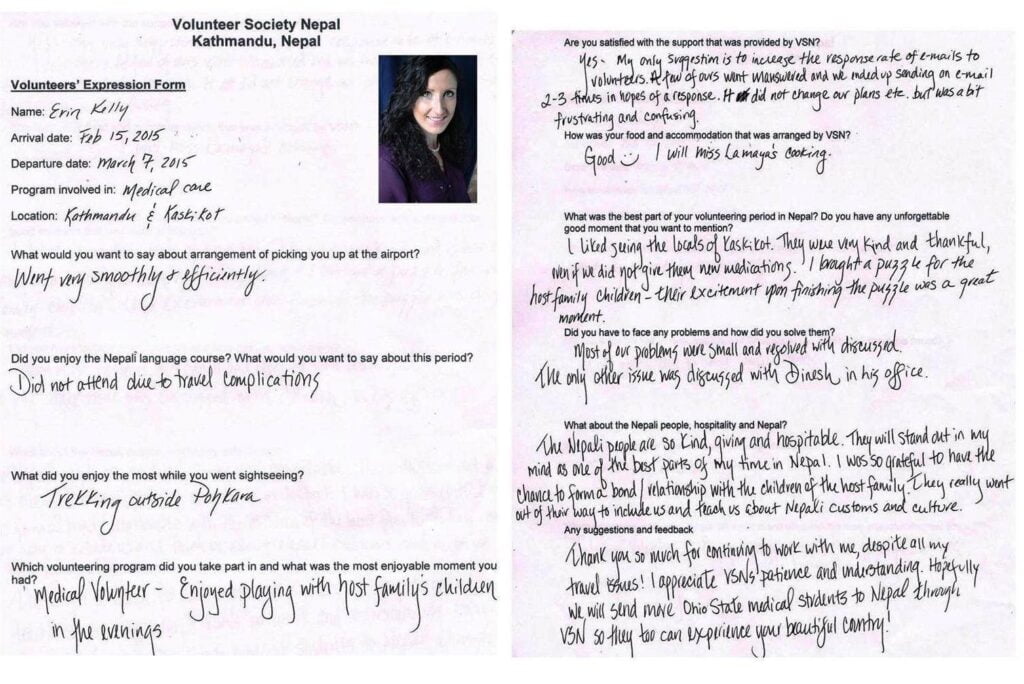 Volunteer Society Nepal
Kathmandu, Nepal
Volunteers' Expression Form
Name: Erin Kelly
Arrival date: Feb 15, 2015
Departure date: March 7, 2015
Program involved in: Medical care
Location: Kathmandu & Kaskikot
What would you want to say about arrangement of picking you up at the airport?
Went very smoothly & efficiently.
Did you enjoy the Nepali language course? What would you want to say about this period?
Did not attend due to travel complications
What did you enjoy the most while you went sightseeing?
Trekking outside Pohkara
Which volunteering program did you take part in and what was the most enjoyable moment you
had?
Medical Volunteer - Enjoyed playing with host family's children
in the evenings
Are you satisfied with the support that was provided by VSN?
Yes - My only suggestion is to increase the response rate of e-mails to
volunteers. A few of ours went unanswered and we ended up sending an e-mail
2-3 times in hopes of a response. It did not change our plans etc. but was a bit
frustrating and confusing.
How was your food and accommodation that was arranged by VSN?
Good I will miss Lamaya's cooking.
What was the best part of your volunteering period in Nepal? Do you have any unforgettable
good moment that you want to mention?
I liked seeing the locals of Kaskikot. They were very kind and thankful,
even if we did not give them new medications. I brought a puzzle for the
host family children - their excitement upon finishing the puzzle was a great
moment.
Did you have to face any problems and how did you solve them?
Most of our problems were small and resolved with discussed.
The only other issue was discussed with Dinesh in his office.
What about the Nepali people, hospitality and Nepal?
The Nepali people are so kind, giving and hospitable. They will stand out in my
mind as one of the best parts of my time in Nepal. I was so grateful to have the
chance to form a bond / relationship with the children of the host family. They really went
out of their way to include us and teach us about Nepali customs and culture.
Any suggestions and feedback
Thank you so much for continuing to work with me, despite all my
travel issues! I appreciate VSN's patience and understanding. Hopefully
we will send more Ohio State medical students to Nepal through
VSN so they too can experience your beautiful country!